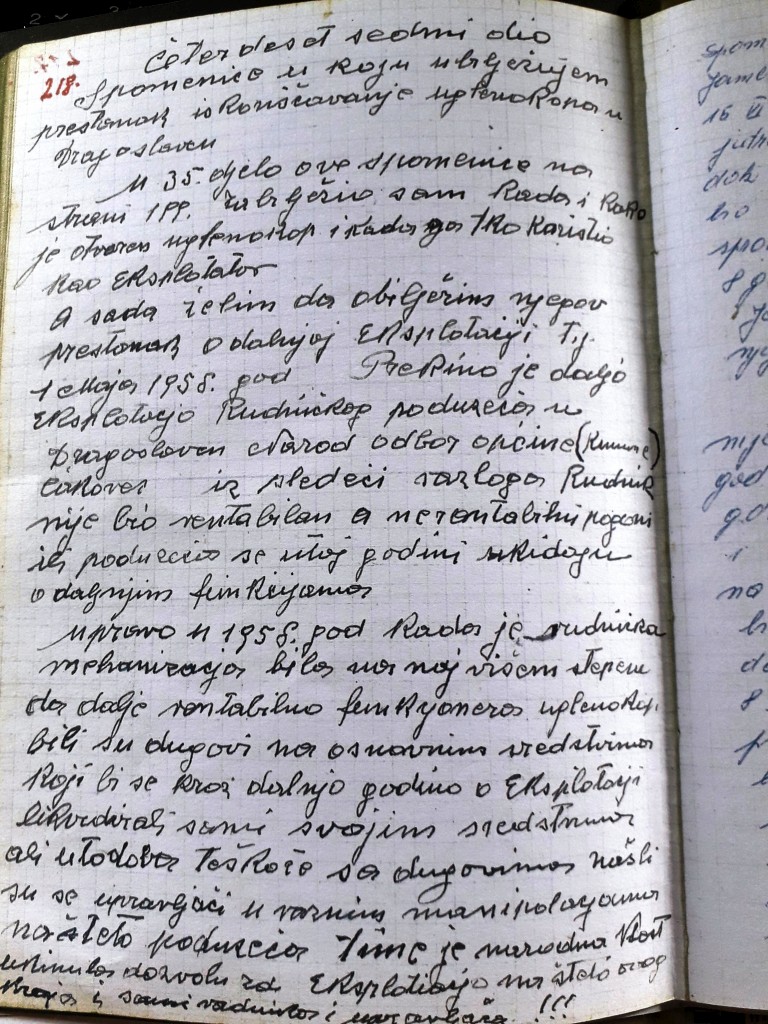 218.
Četerdeset sedmi dio
Spomenice u koju ubilježujem
prestanak iskorišćavanje uglenokopa u
Dragoslavcu
U 35. djelo ove spomenice na
strani 199. zabilježio sam kada i kako
je otvoren uglenokop i kada ga tko koristio
kao Eksploatator
A sada želim da obilježim njegov
prestanak o daljnjoj Eksplotaciji t.j.
1 Maja 1958. god Prekino je daljo
Eksplotacijo Rudničkog poduzeća u
Dragoslavcu Narod odbor općine
Čakovec iz sledeći razloga Rudnik
nije bio rentabilan a nerentabilni pogoni
ili poduzeća se utoj godini ukidaju
o daljnjim funkcijama
Upravo u 1958. god kada je rudnička
mehanizacija bila na naj višem stepenu
da dalje rentabilno funkcionera uglenokop,
bili su dugovi na osnovnim sredstvima
koji bi se kroz dalnjo godino o Eksplotaciji
likvidirali sami svojim sredstvima
ali utodoba teškoće sa dugovima našli
su se upravljači u raznim manipolacijama
na šteto poduzeća time je narodna vlast
ukinula dozvolu za Eksplotacijo na šteto ovog
kraja i sami radnika i upravljača !!!